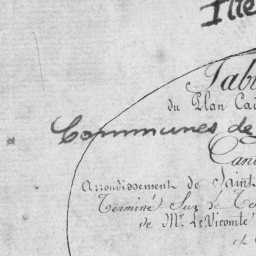 Tabl
du Plan Ca
Communes de
Can
Arrondissement de Saint
Terminé Sur le Te
de Mr. Le Vicomte
et